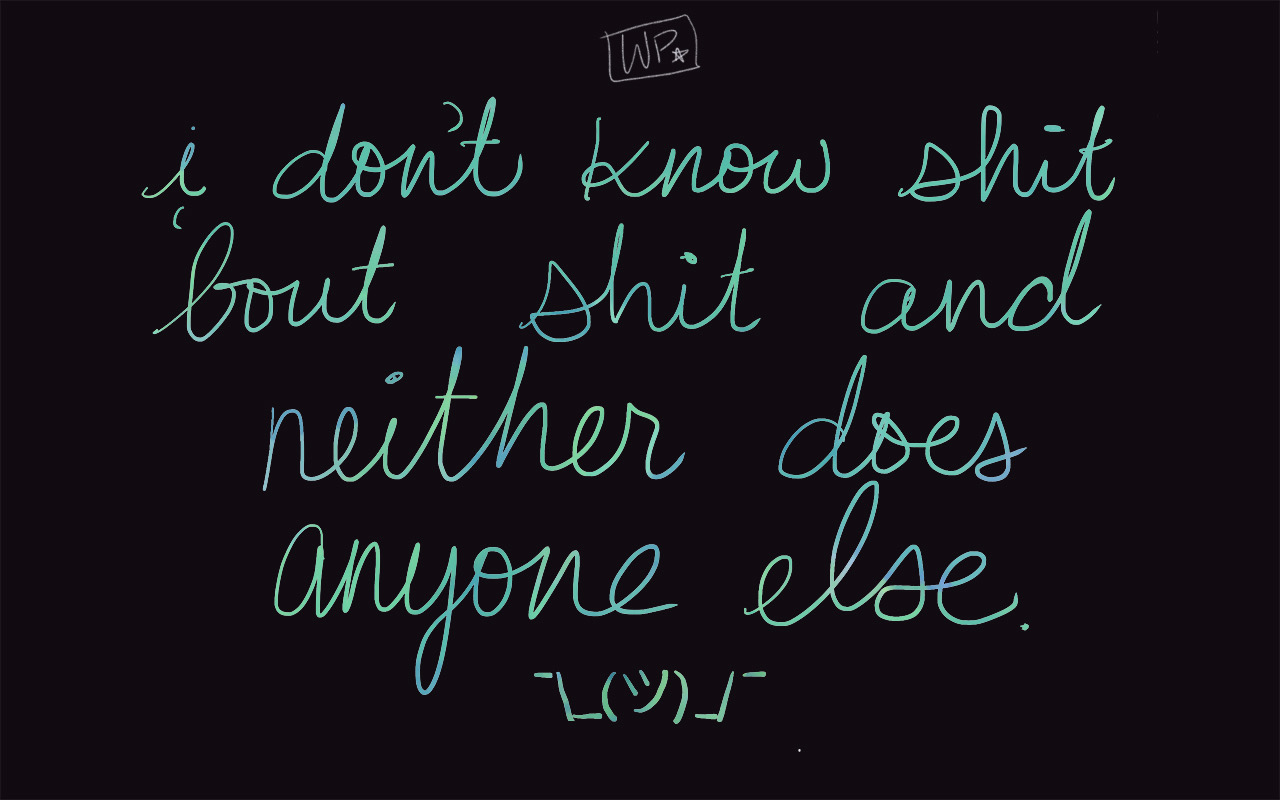 WP☆
i don't know shit
'bout shit and
neither does
anyone else.
¯\_(ツ)_/¯